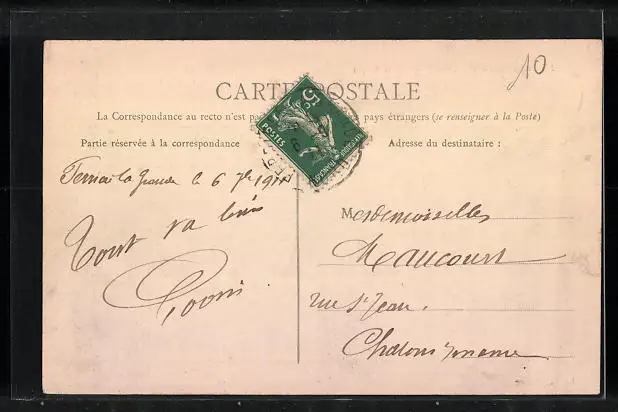 10
CARTE POSTALE
La Correspondance au recto n'est pas pays étrangers (se renseigner à la Poste)
Partie réservée à la correspondance
Adresse du destinataire :
5c
POSTES
la Grande le 6 7bre 1911
Tout va bien
Mesdemoiselles
Maucourt
rue St Jean.
Chalons s/marne